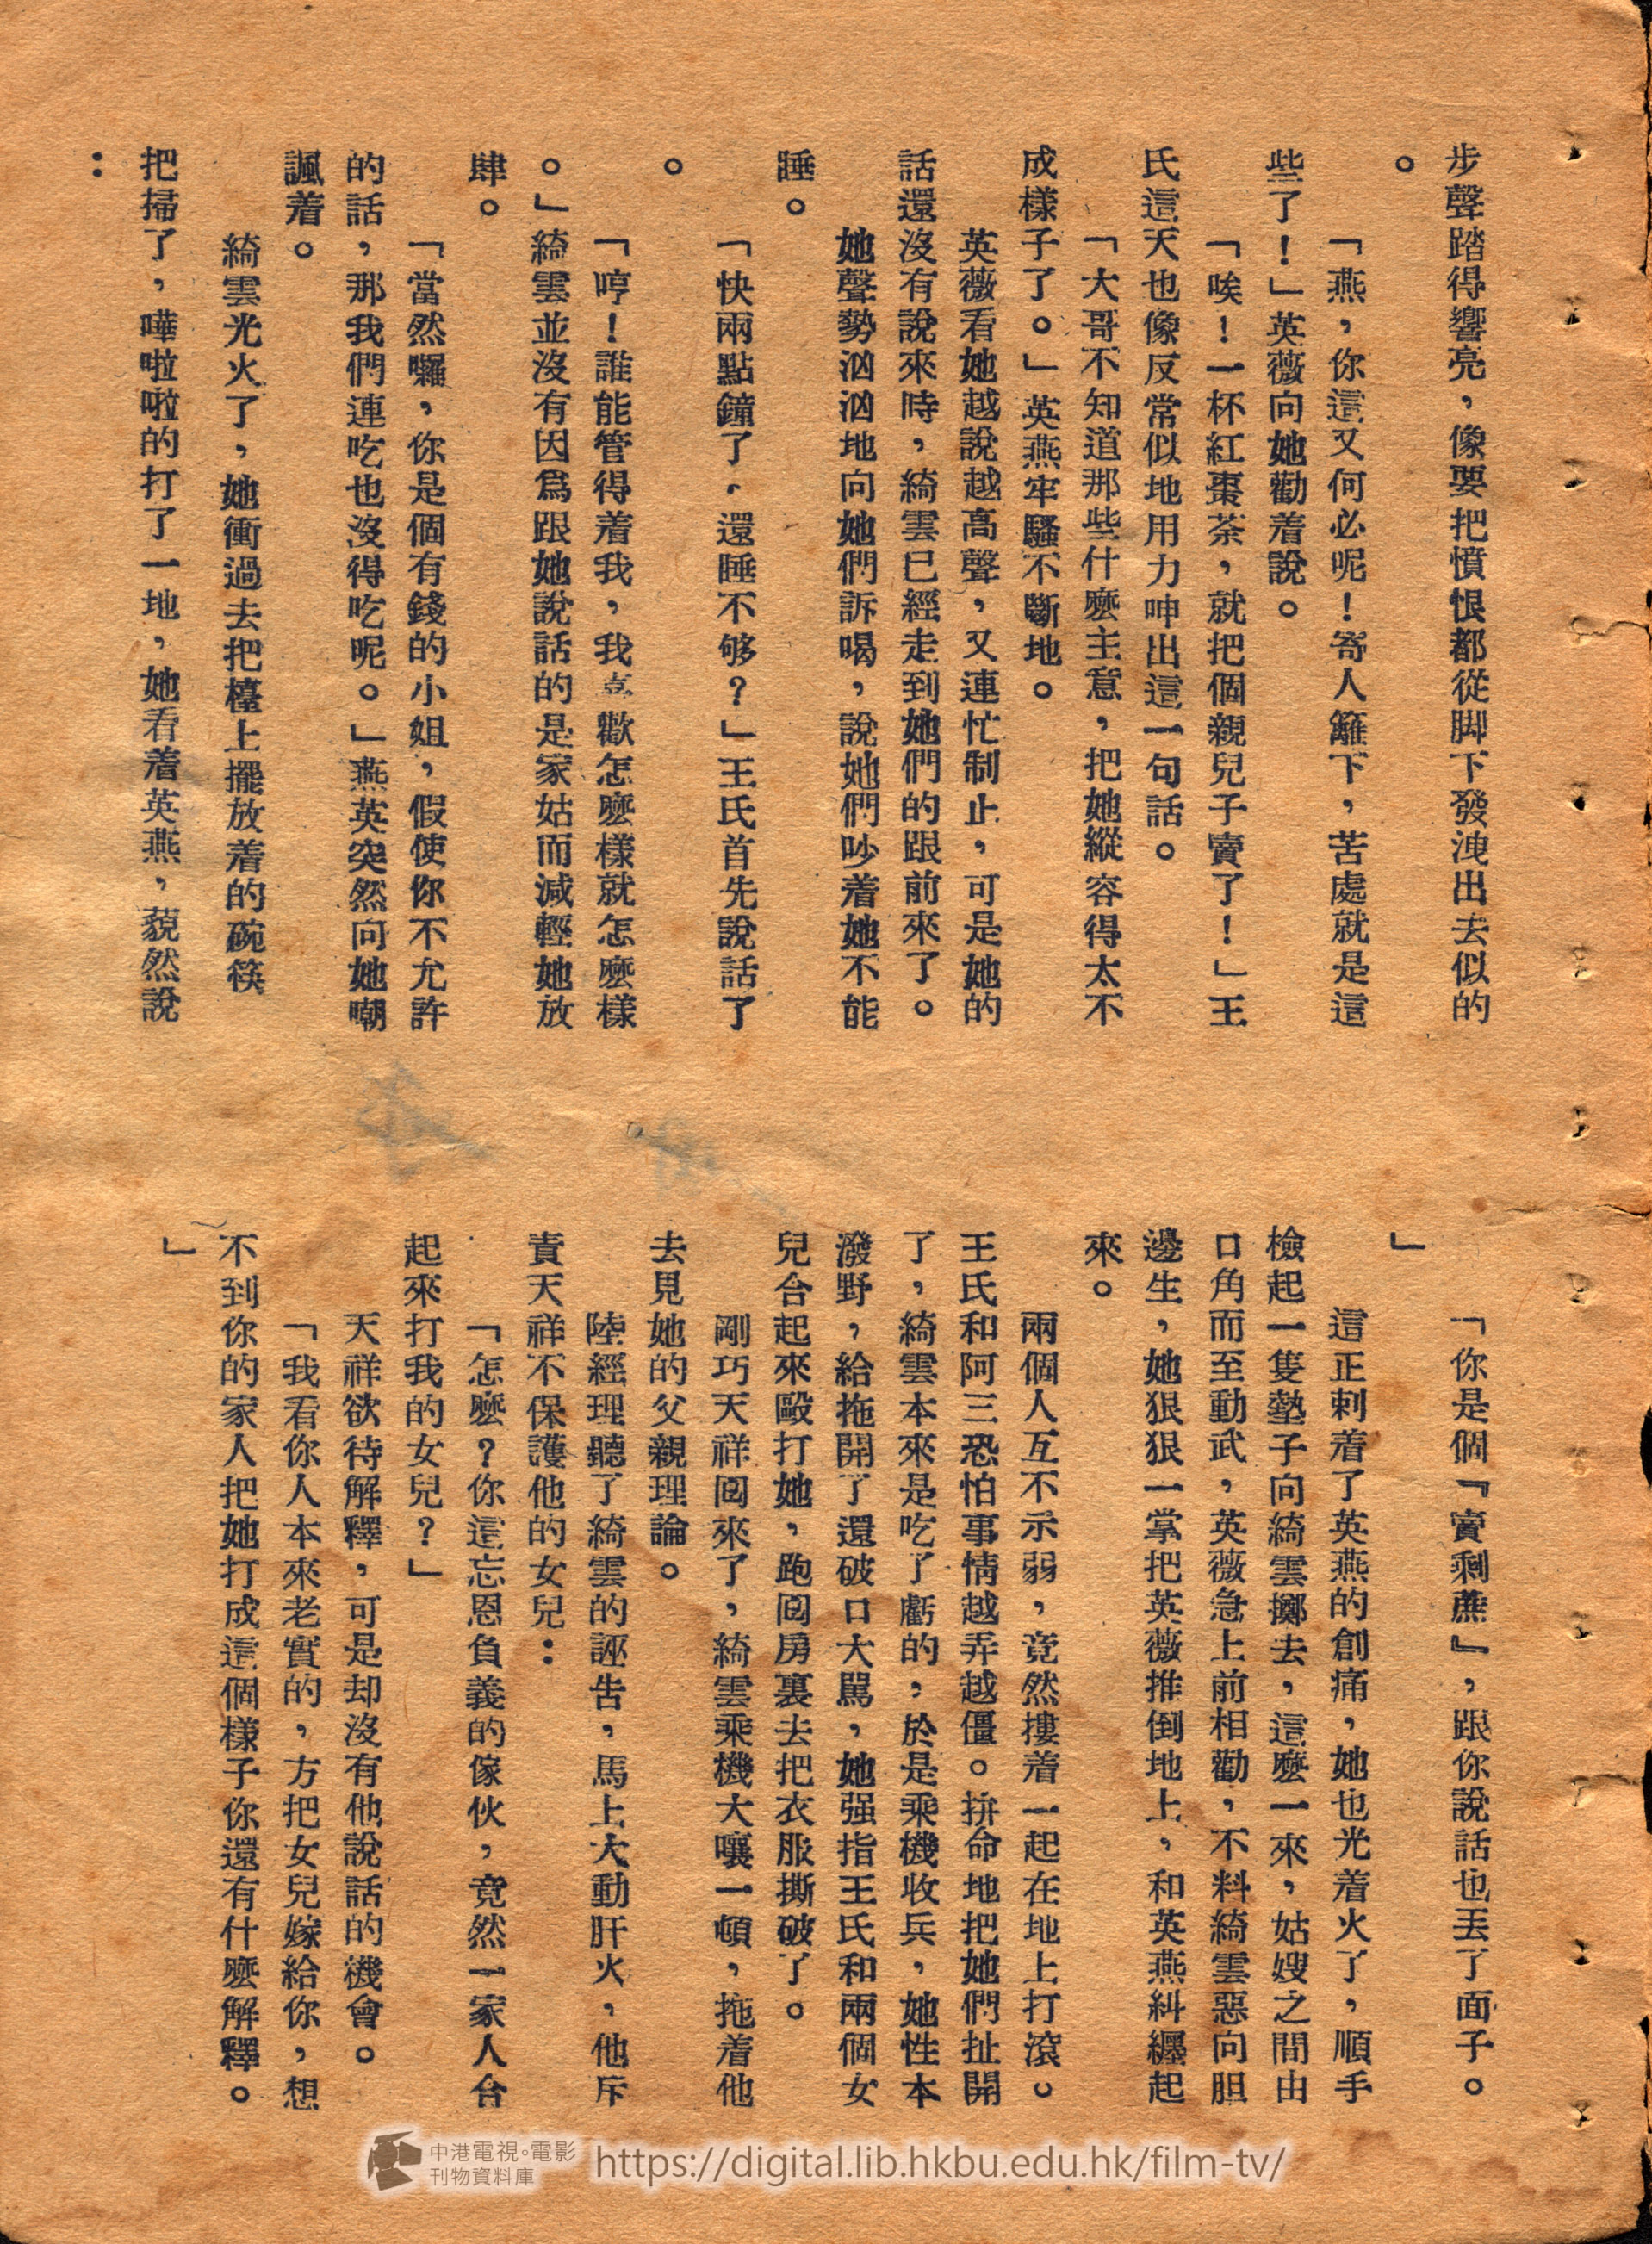 步聲踏得響亮，像要把憤恨都從脚下發洩出去似的
。
「燕，你這又何必呢！寄人籬下，苦處就是這
些了！」英薇向她勸着說。
「唉！一杯紅棗茶，就把個親兒子賣了！」王
氏這天也像反常似地用力呻出這一句話。
「大哥不知道那些什麽主意，把她縱容得太不
成樣子了。」英燕牢騷不斷地。
英薇看她越說越高聲，又連忙制止，可是她的
話還沒有說來時，綺雲已經走到她們的跟前來了。
她聲勢汹汹地向她們訴喝，說她們吵着她不能
睡。
「快兩點鐘了．還睡不够？」王氏首先說話了
。
「哼！誰能管得着我，我喜歡怎麽樣就怎麽樣
。」綺雲並沒有因爲跟她說話的是家姑而減輕她放
肆。
「當然囉，你是個有錢的小姐，假使你不允許
的話，那我們連吃也沒得吃呢。」燕英突然向她嘲
諷着。
綺雲光火了，她衝過去把檯上擺放着的碗筷
把掃了，嘩啦啦的打了一地，她看着英燕，藐然說
：
「你是個『賣剩蔗』，跟你說話也丟了面子。
」
這正刺着了英燕的創痛，她也光着火了，順手
檢起一隻墊子向綺雲擲去，這麽一來，姑嫂之間由
口角而至動武，英薇急上前相勸，不料綺雲惡向胆
邊生，她狠狠一掌把英薇推倒地上，和英燕糾纒起
來。
兩個人互不示弱，竟然摟着一起在地上打滾。
王氏和阿三恐怕事情越弄越僵。拚命地把她們扯開
了，綺雲本來是吃了虧的，於是乘機收兵，她性本
潑野，給拖開了還破口大駡，她强指王氏和兩個女
兒合起來毆打她，跑囘房裏去把衣服撕破了。
剛巧天祥囘來了，綺雲乘機大嚷一頓，拖着他
去見她的父親理論。
陸經理聽了綺雲的誣告，馬上大動肝火，他斥
責天祥不保護他的女兒：
「怎麽？你這忘恩負義的傢伙，竟然一家人合
起來打我的女兒？」
天祥欲待解釋，可是却沒有他說話的機會。
「我看你人本來老實的，方把女兒嫁給你，想
不到你的家人把她打成這個樣子你還有什麽解釋。
」
中港電視。電影
刊物資料庫
https://digital.lib.hkbu.edu.hk/film-tv/